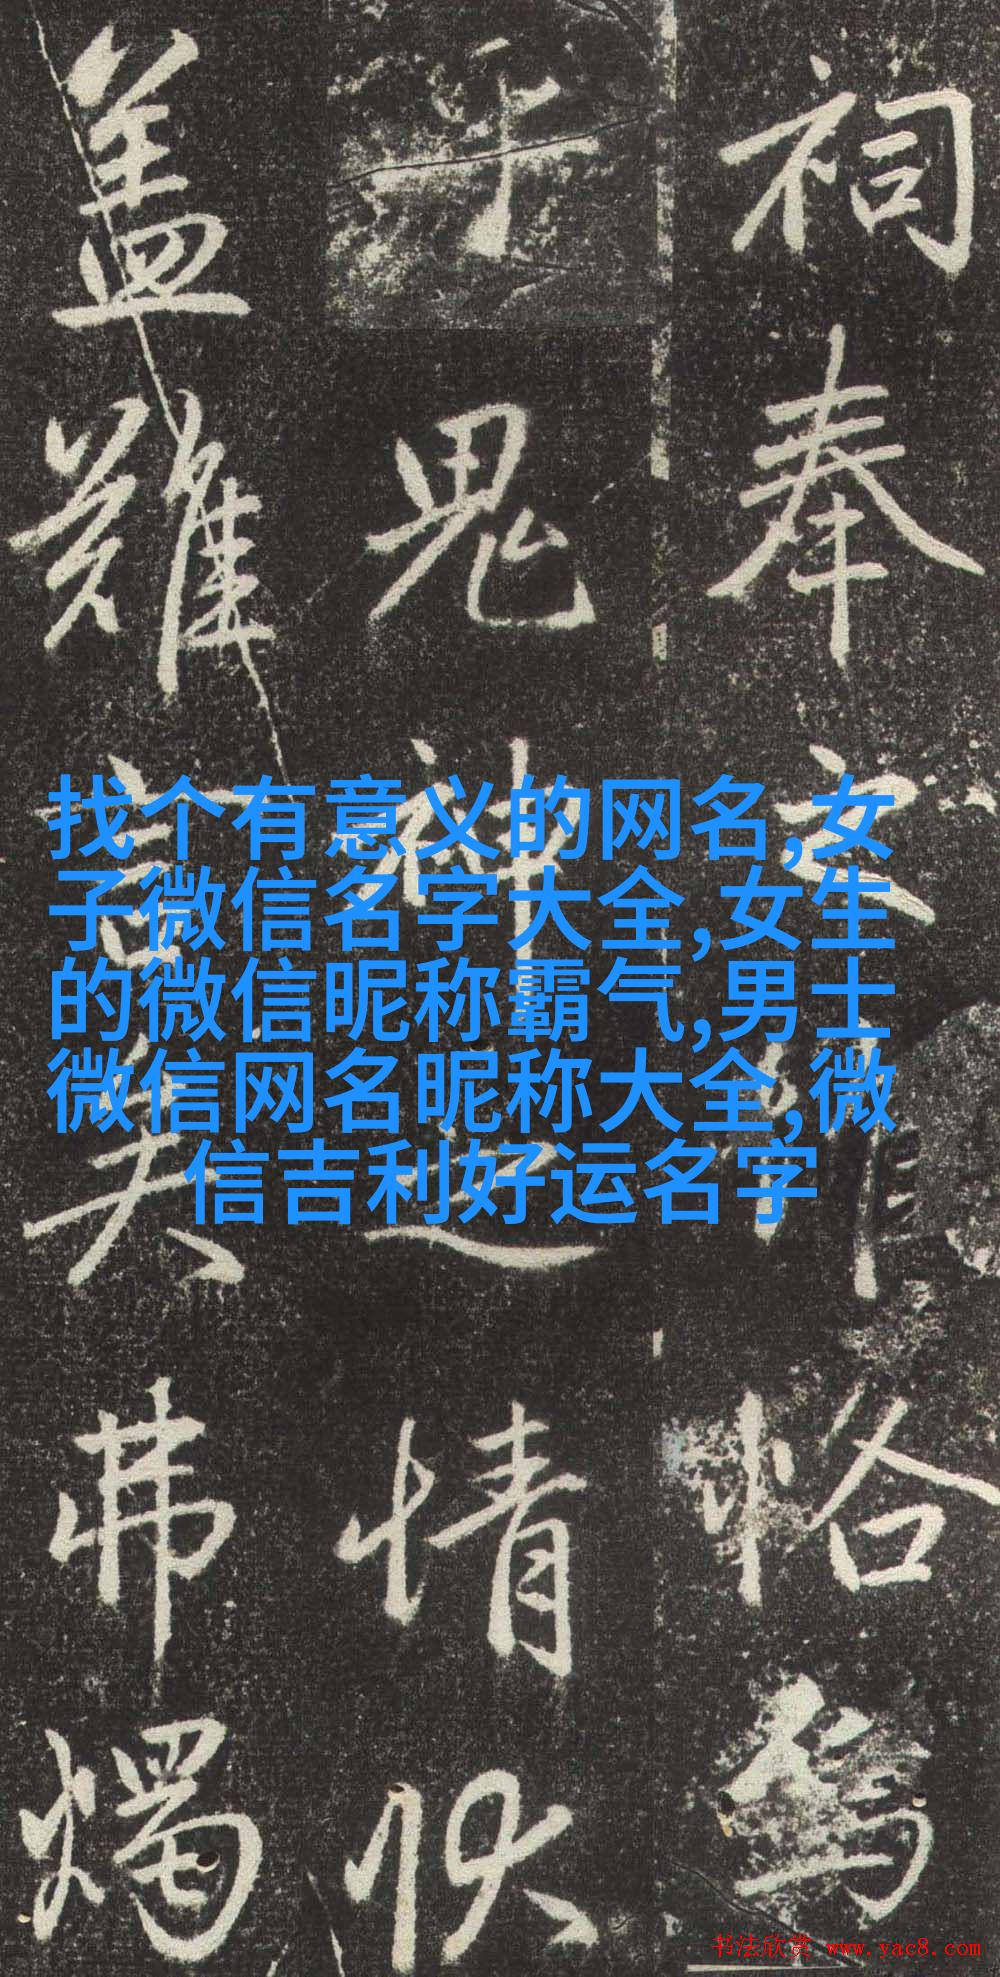 祠奉之惟恪焉
鬼神之情状
盖難言矣弗燭
找个有意义的网名,女
子微信名字大全,女生
的微信昵称霸气,男士
微信网名昵称大全,微
信吉利好运名字
书法欣赏 www.yac8.com